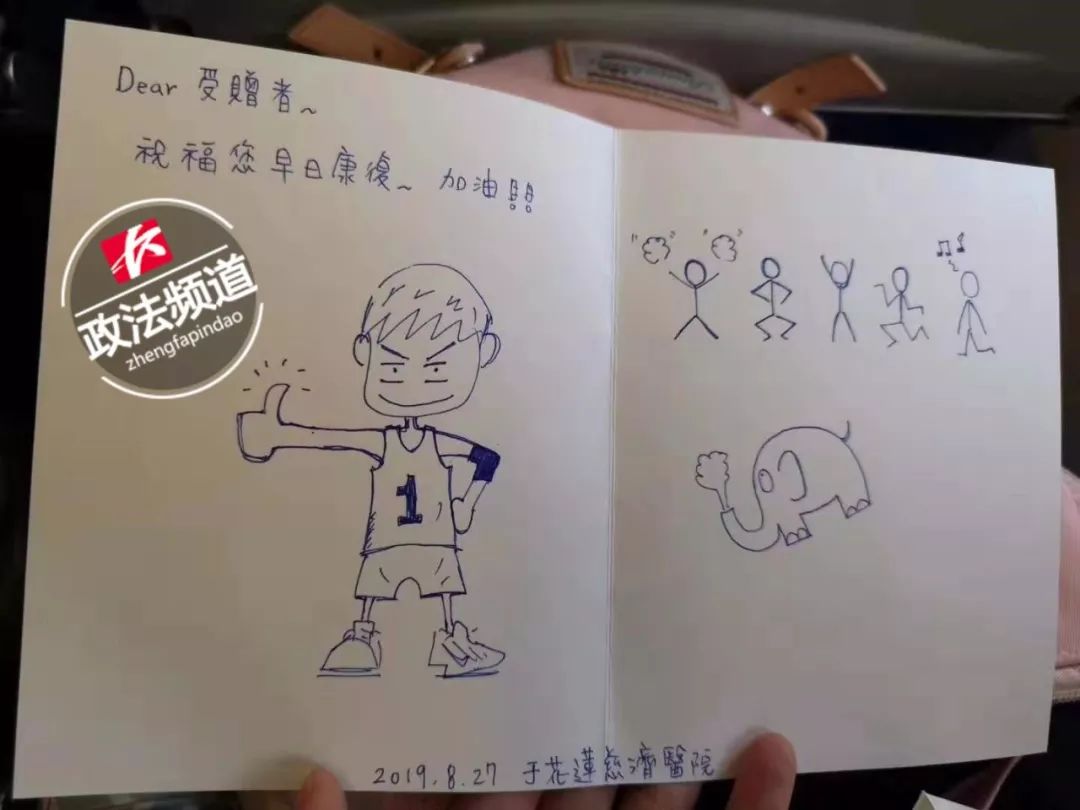 Dear 受贈者~
祝福您早日康復~ 加油!!!
政法频道
zhengfapindao
1
2019.8.27 于花蓮慈濟醫院